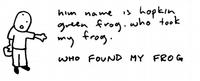 him name is hopkin
green frog. who took
my frog.
WHO FOUND MY FROG